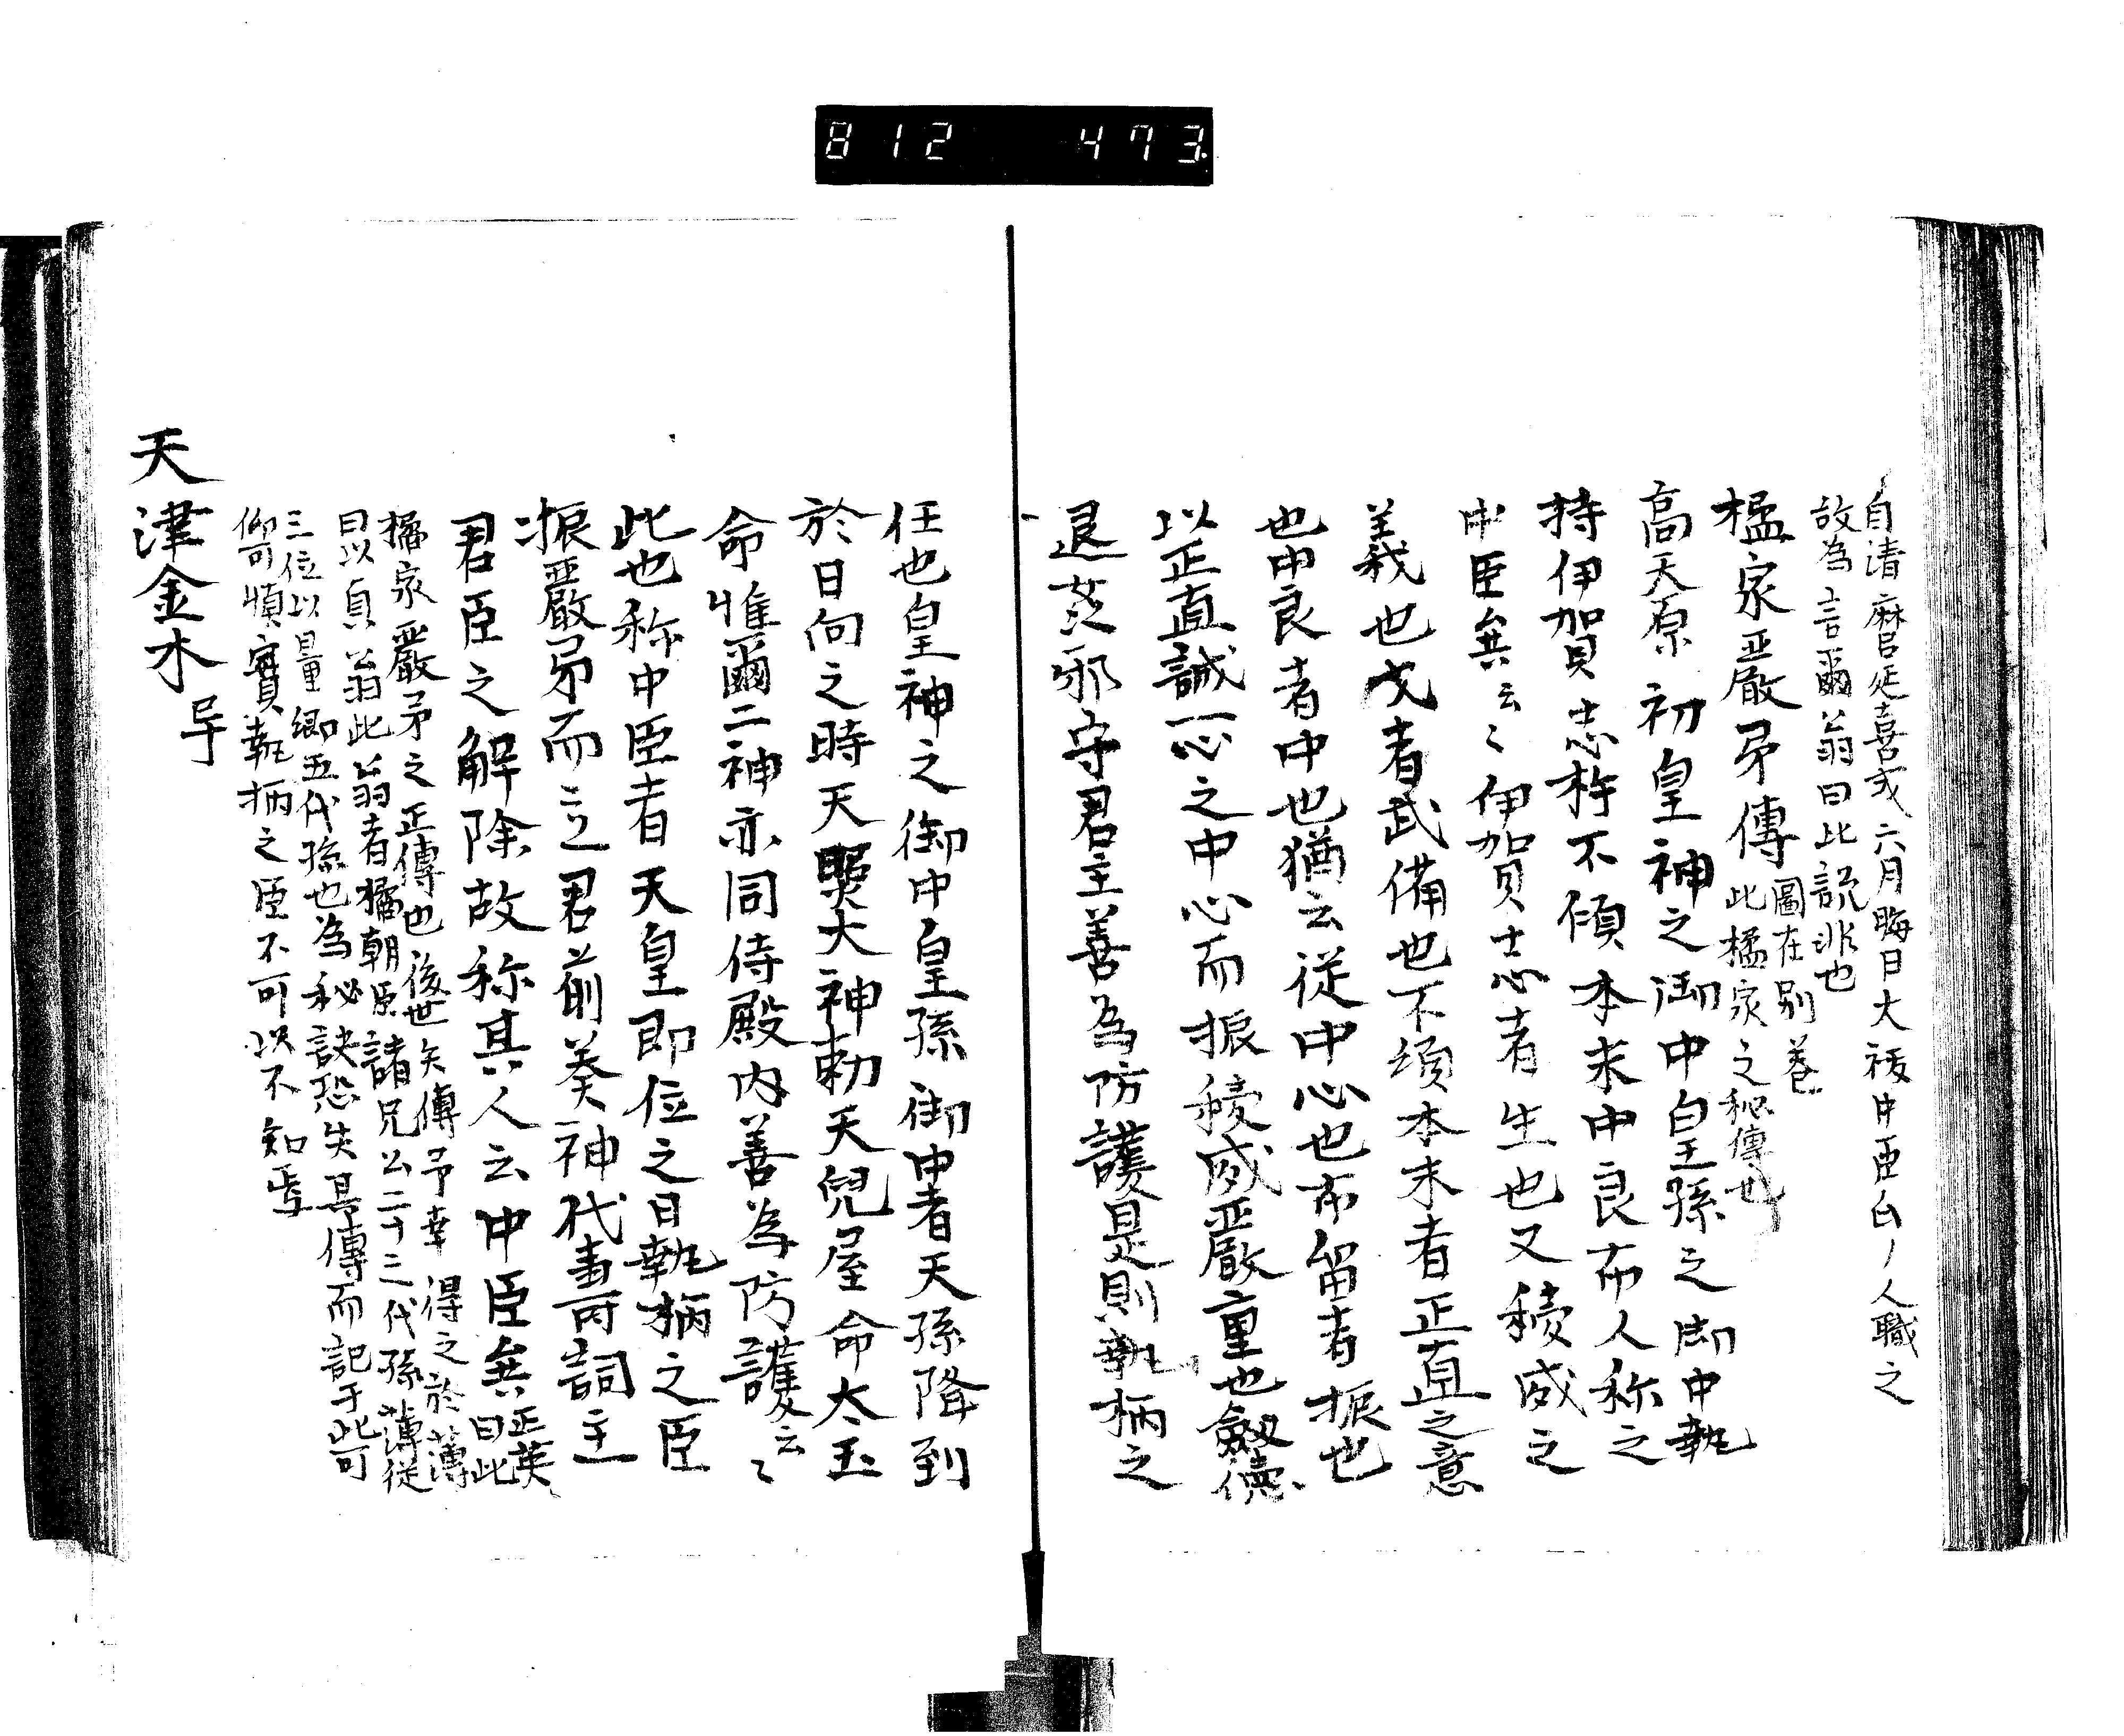 812 473.
自清麿延喜式六月晦日大祓中臣ト人職之
故為言爾翁曰此説非也
橘家嚴矛傳 圖在別巻
此橘家之秘傳也
高天原初皇神之御中皇孫之御中執
持伊賀志桙不傾本末中良布人称之
中臣矣云々伊賀志者生也又稜威之
義也戈者武備也不傾本末者正直之意
也中良者中也猶云従中心也布留者振也
以正直誠心之中心而振稜威嚴重也劔德
退萬邪守君主善為防護是則執柄之
任也皇神之御中皇孫御中者天孫降到
於日向之時天照大神勅天兒屋命太玉
命惟爾二神亦同侍殿内善為防護云々
此也称中臣者天皇即位之日執柄之臣
振嚴矛而立君前奏神代壽詞主
君臣之解除故称其人云中臣矣 正英
曰此
橘家嚴矛之正傳也後世矢傳予幸得之於薄
曰以貞翁此翁者橘朝臣諸兄公二十三代孫薄従
三位以量卿五代孫也為秘訣恐失其傳而記于此可
仰可慎實執柄之臣不可以不知焉
天津金木